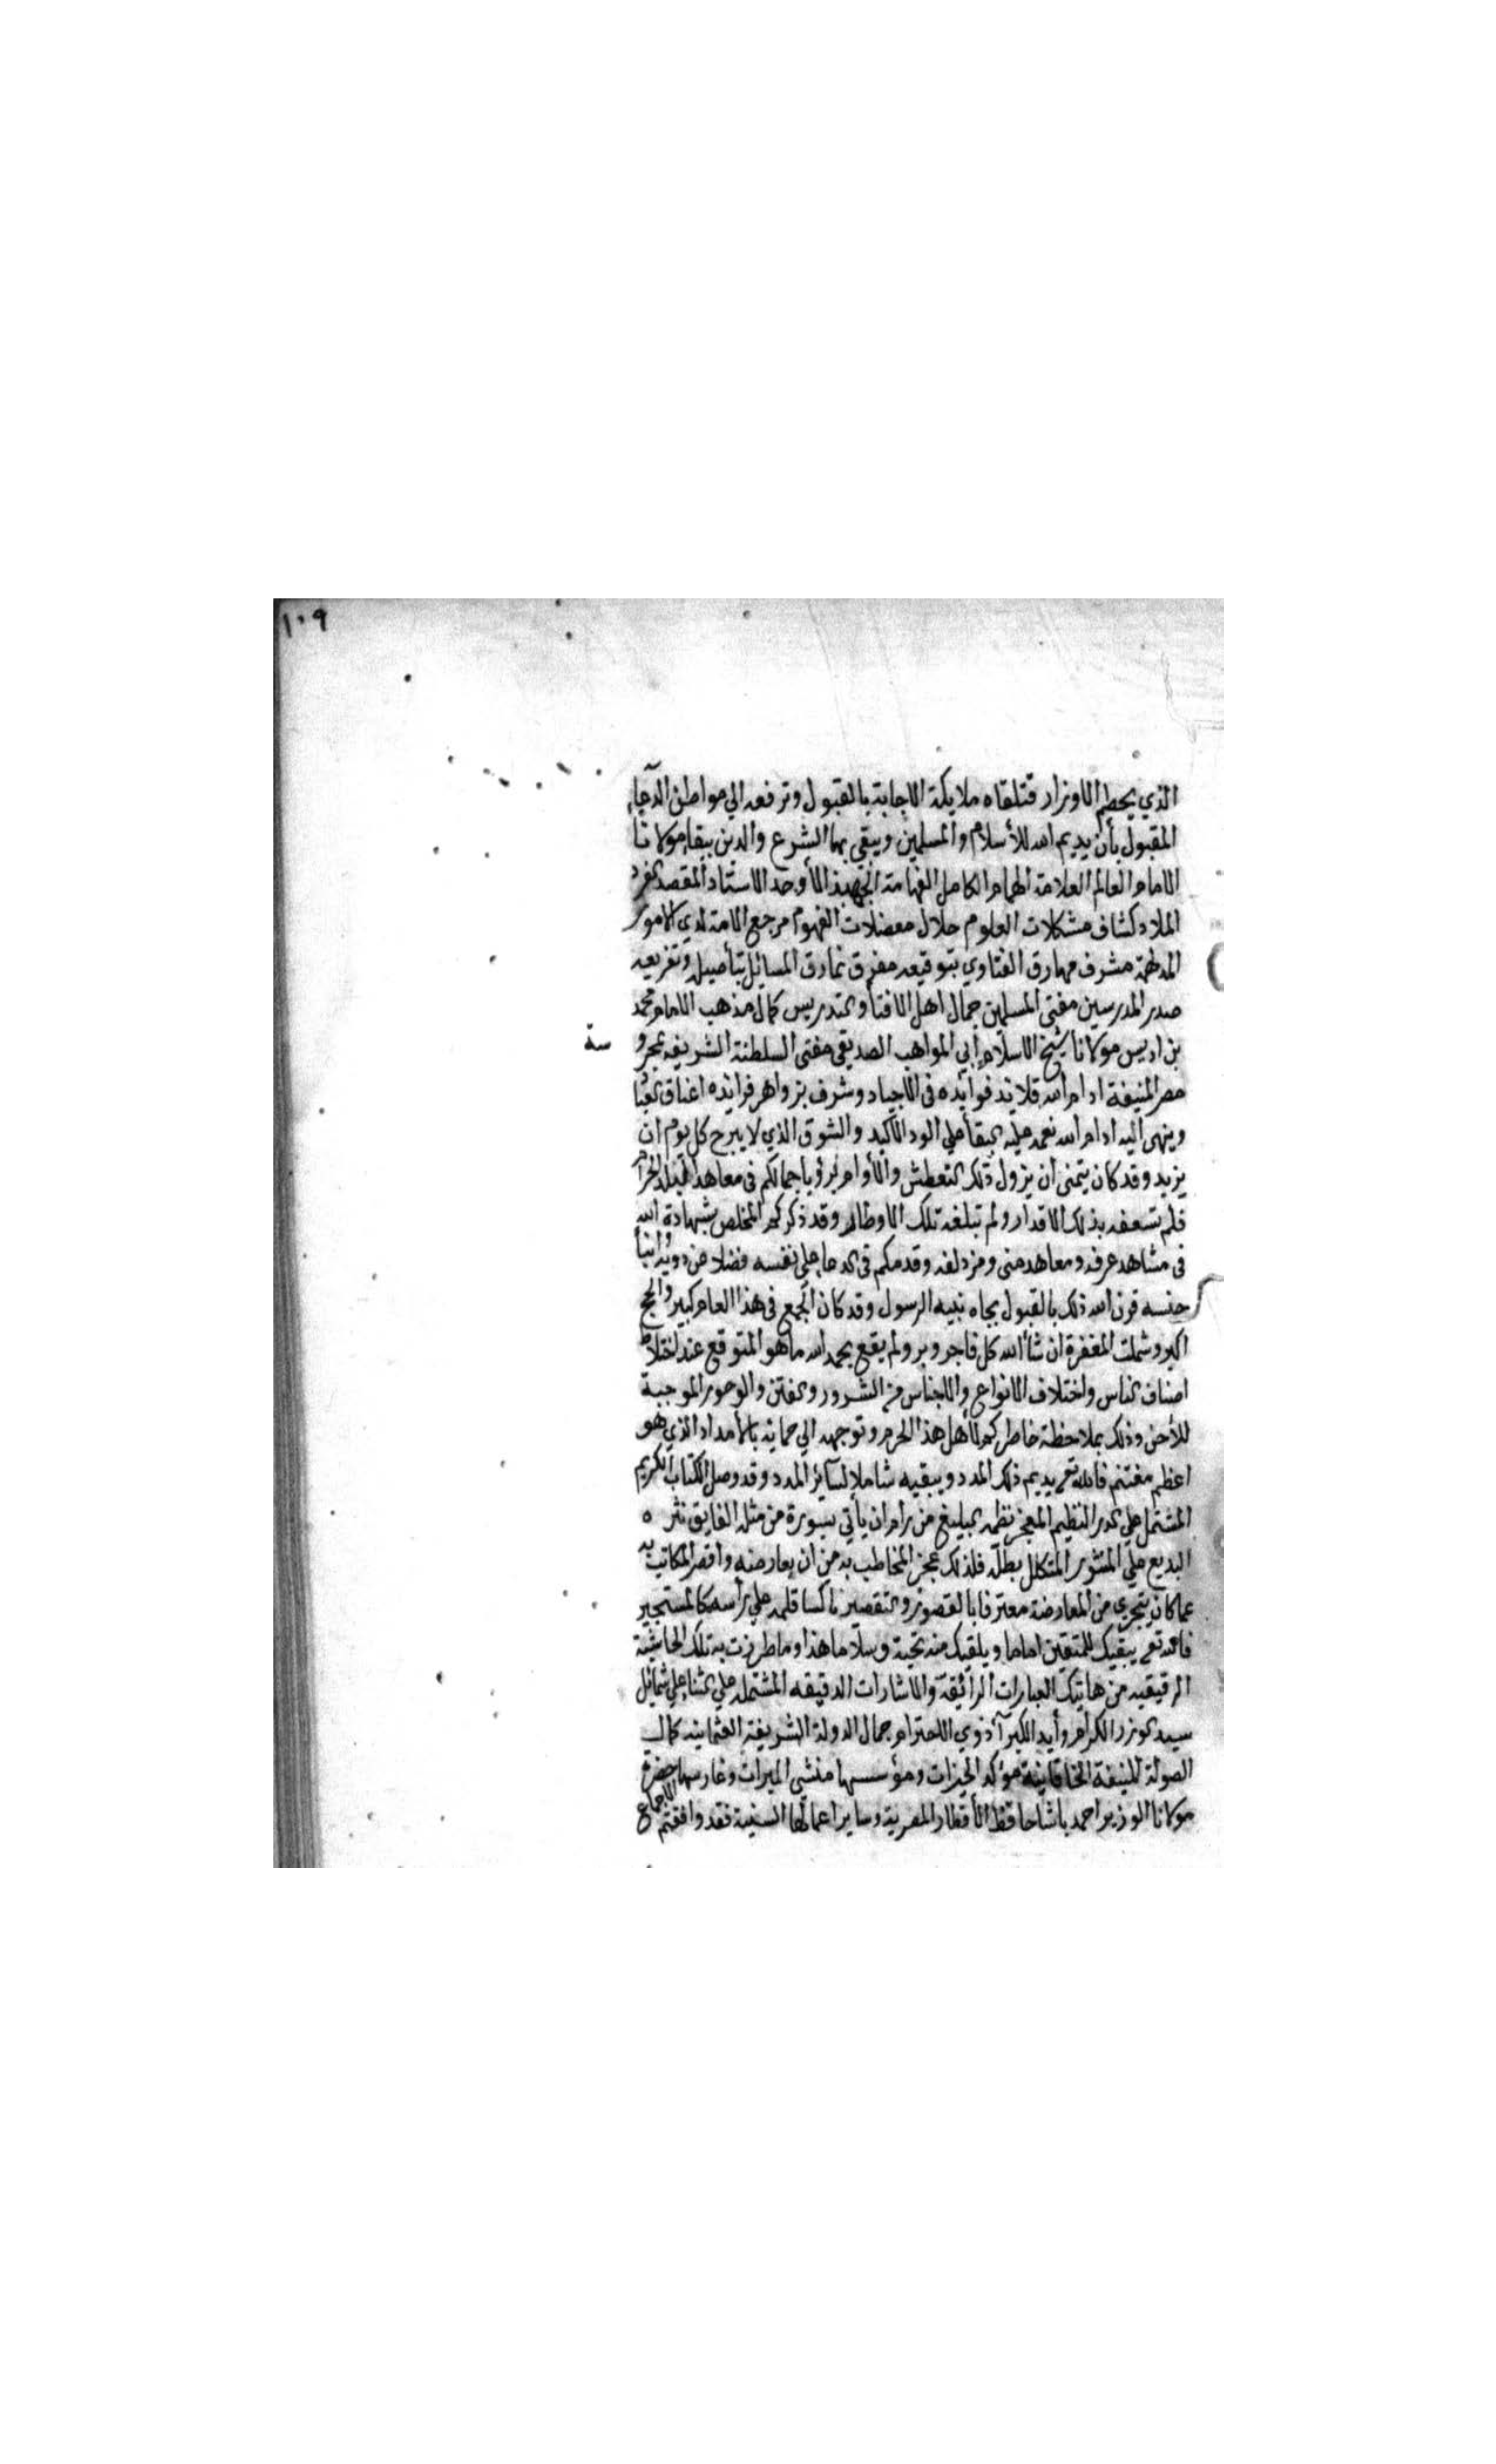 ١٠٩
الذي يحطم الاوزار فتلقاه ملايكة الاجابة بالقبول وترفعه الي مواطن الدعاء
المقبول بأن يديم الله للأسلام والمسلمين ويبقي بها الشرع والدين ببقاء مولانا
الامام العالم العلامة الهمام الكامل الفهامة الجهبذ الأوحد الاستاد المقصد المفرد
الملاد كشاف مشكلات العلوم حلال معضلات الفهوم مرجع الامة لدي الامور
المدلهمة مشرف مهارق الفتاوي بتوقيعه مفرق نمارق المسائل بتأصيله وتفريعه
صدر المدرسين مفتي المسلمين جمال اهل الافتا والتدريس كمال مذهب الامام محمد
بن ادريس مولانا شيخ الاسلام أبي المواهب الصديقي مفتي السلطنة الشريفة بمحرو
سة
مصر المنيفة ادام الله قلايد فوايده في الاجياد وشرف بزواهر فرايده اعناق
وينهي اليه ادام الله نعمه عليه البقا علي الود الأكيد والشوق الذي لا يبرح كل يوم ان
يزيد وقد كان يتمني ان يزول ذلك التعطش والأوام برؤيا جمالكم في معاهد البلد الحرام
فلم تسعفه بذلك الاقدار ولم تبلغه تلك الاوطار وقد ذكركم المخلص بشهادة الله
في مشاهد عرفه ومعاهد مني ومزدلفه وقدمكم في الدعاء علي نفسه فضلا من ذويه وابنا
جنسه قرن الله ذلك بالقبول بجاه نبيه الرسول وقد كان الجمع في هذا العام كبير والحج
اكبر وشملت المغفرة ان شأ الله كل فاجر وبر ولم يقع بحمد الله ما هو المتوقع عند اختلاط
اصناف الناس واختلاف الانواع والاجناس من الشرور والفتن والوحور الموجبة
للأحن وذلك بملاحظة خاطركم لأهل هذا الحرم وتوجهه الي حمايته بالأمداد الذي هو
اعظم مغتنم فالله تعم يديم ذلك المدد ويبقيه شاملا لسآئر المدد وقد وصل الكتاب الكريم
المشتمل علي الدر النظيم المعجز نظمه البليغ من رام ان يأتي بسورة من مثله الفايق نثره
البديع علي المنثور المتكلل بطله فلذلك عجز المخاطب به من ان يعارضه واقصر المكاتب به
عما كان يتجري من المعارضة معترفا بالقصور والتقصير ناكسا قلمه علي رأسه كالمستجير
فالله تعم يبقيك للمتقين اماما ويلقيك منه تحية وسلاما هذا وما طرزت به تلك الحاشية
الرقيقيه من هاتيك العبارات الرائقة والاشارات الدقيقه المشتمله علي الثناء علي شمائل
سيد الوزر الكرام وأيد الكبرآ ذوي الاحترام جمال الدولة الشريفة العثمانيه كمال
الصولة المنيفة الخاقانية مؤكد الخيرات ومؤسسها منشي الميرات وغارسها حضرة
مولانا الوزير احمد باشا حافظ الأقطار المصرية وساير اعمالها السنية فقد وافقتم الاجماع